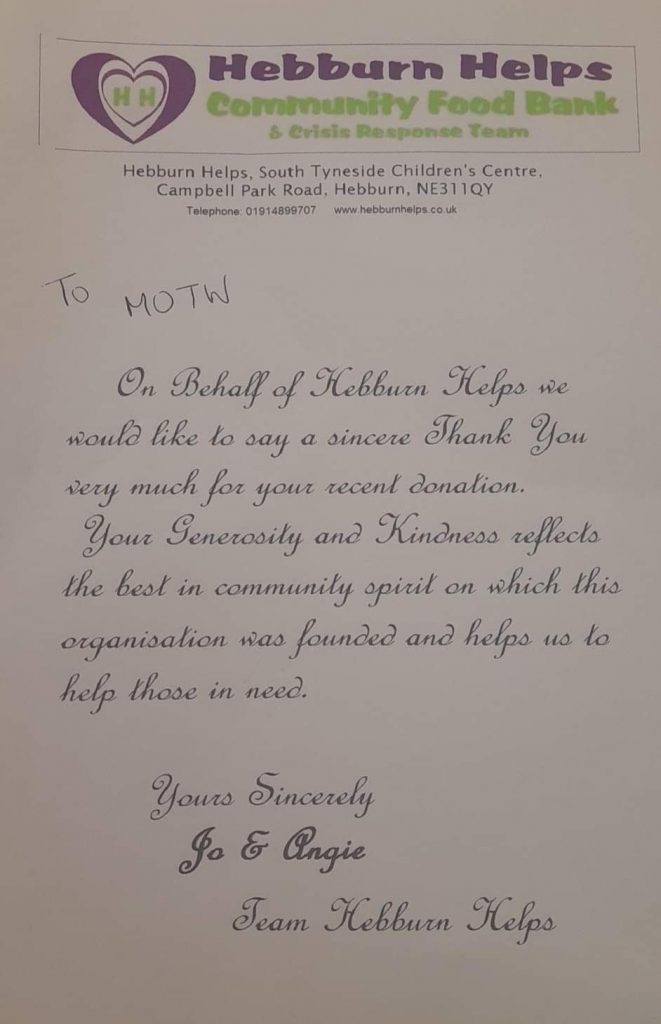 H H
Hebburn Helps
Community Food Bank
& Crisis Response Team
Hebburn Helps, South Tyneside Children's Centre,
Campbell Park Road, Hebburn, NE311QY
Telephone: 01914899707 www.hebburnhelps.co.uk
To MOTW
On Behalf of Hebburn Helps we
would like to say a sincere Thank You
very much for your recent donation.
Your Generosity and Kindness reflects
the best in community spirit on which this
organisation was founded and helps us to
help those in need.
Yours Sincerely
Jo & Angie
Team Hebburn Helps